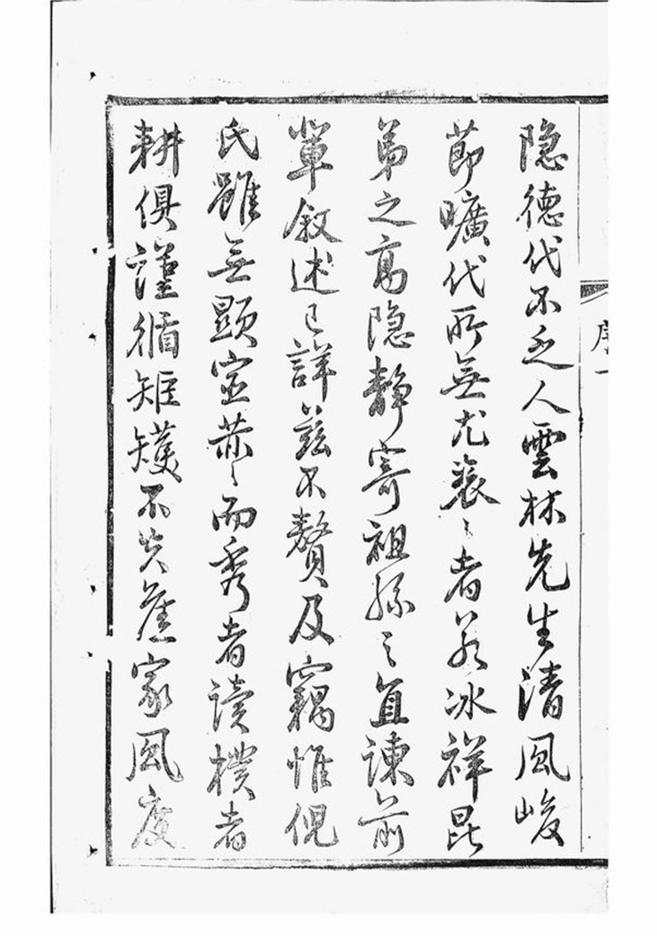 序一
隐德代不乏人雲林先生清風峻
節曠代所無尤表〻者若冰祥昆
弟之高隐静寄祖孫之直諫前
輩叙述已詳茲不贅及竊惟倪
氏雖無顯宦赫〻而秀者讀樸者
耕俱謹循矩矱不失舊家風度